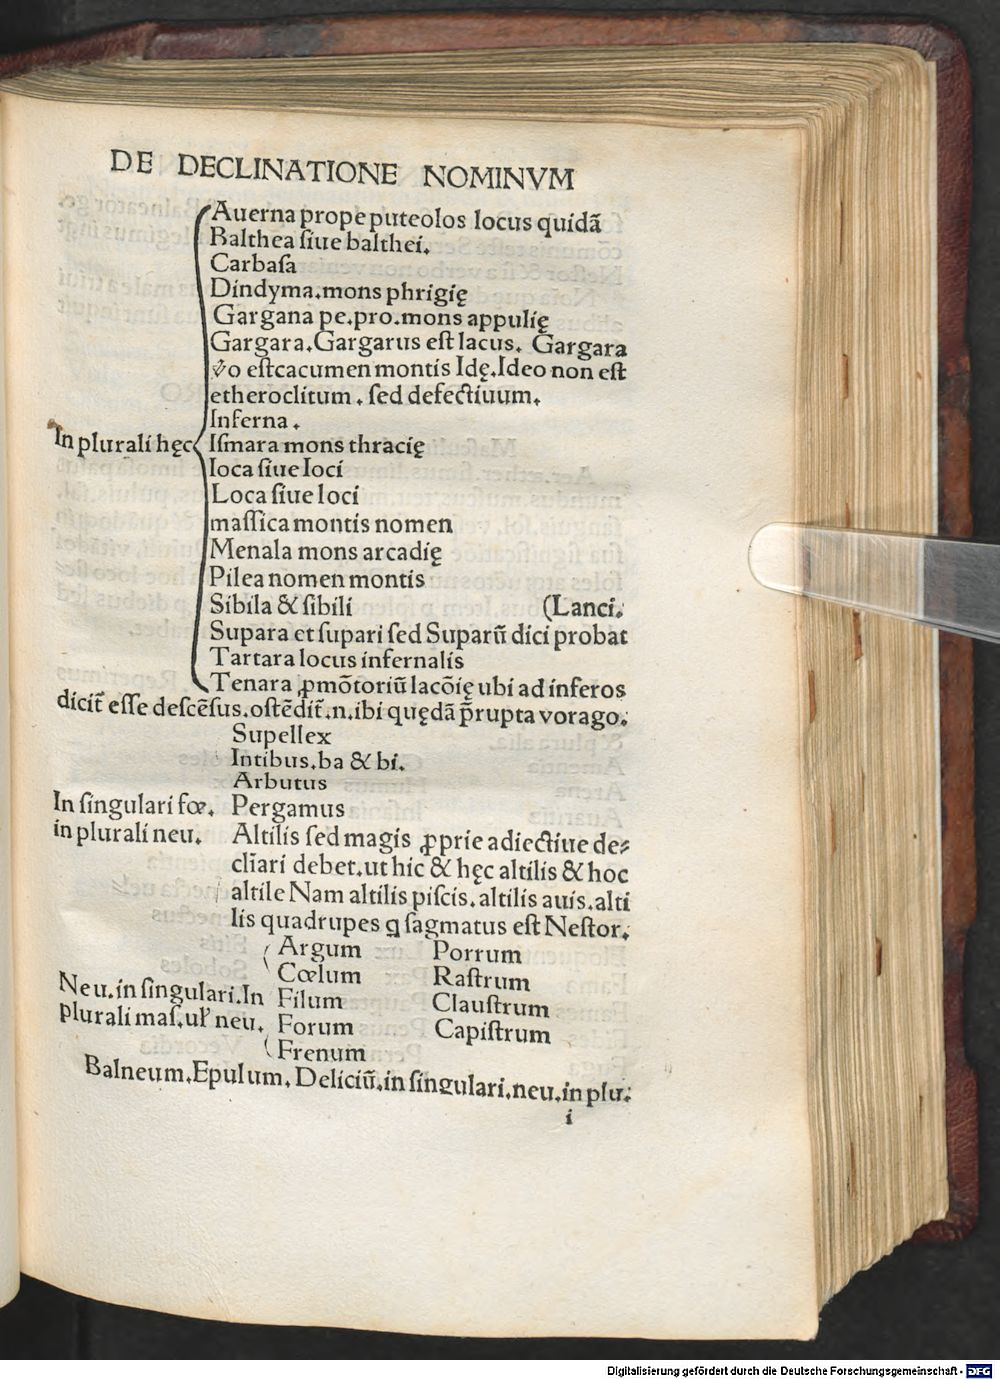 DE DECLINATIONE NOMINVM
Auerna prope puteolos locus quidã
Balthea ſiue balthei.
Carbaſa
Dindyma.mons phrigię
Gargana pe.pro.mons appulię
Gargara.Gargarus eſt lacus. Gargara
ꝟo eſtcacumen montis Idę.Ideo non eſt
etheroclitum . ſed defectiuum.
Inferna .
In plurali hęc Iſmara mons thracię
Ioca ſiue Ioci
Loca ſiue loci
maſſica montis nomen
Menala mons arcadię
Pilea nomen montis
Sibila & ſibili (Lanci.
Supara et ſupari ſed Suparũ dici probat
Tartara locus infernalis
Tenara ꝓmõtoriũ lacõię ubi ad inferos
dicit̃ eſſe deſcẽſus.oſtẽdit̃.n.ibi quędã p̃rupta vorago.
Supellex
Intibus.ba & bi.
Arbutus
In ſingulari fœ. Pergamus
in plurali neu. Altilis ſed magis ꝓprie adiectiue de⸗
cliãri debet.ut hic & hęc altilis & hoc
altile Nam altilis piſcis.altilis auis.alti
lis quadrupes q ſagmatus eſt Neſtor.
Argum Porrum
Cœlum Raſtrum
Neu.in ſingulari.In Filum Clauſtrum
plurali maſ.uł neu. Forum Capiſtrum
Frenum
Balneum.Epulum. Deliciũ.in ſingulari.neu.in plu.
i
Digitalisierung gefördert durch die Deutsche Forschungsgemeinschaft - DFG